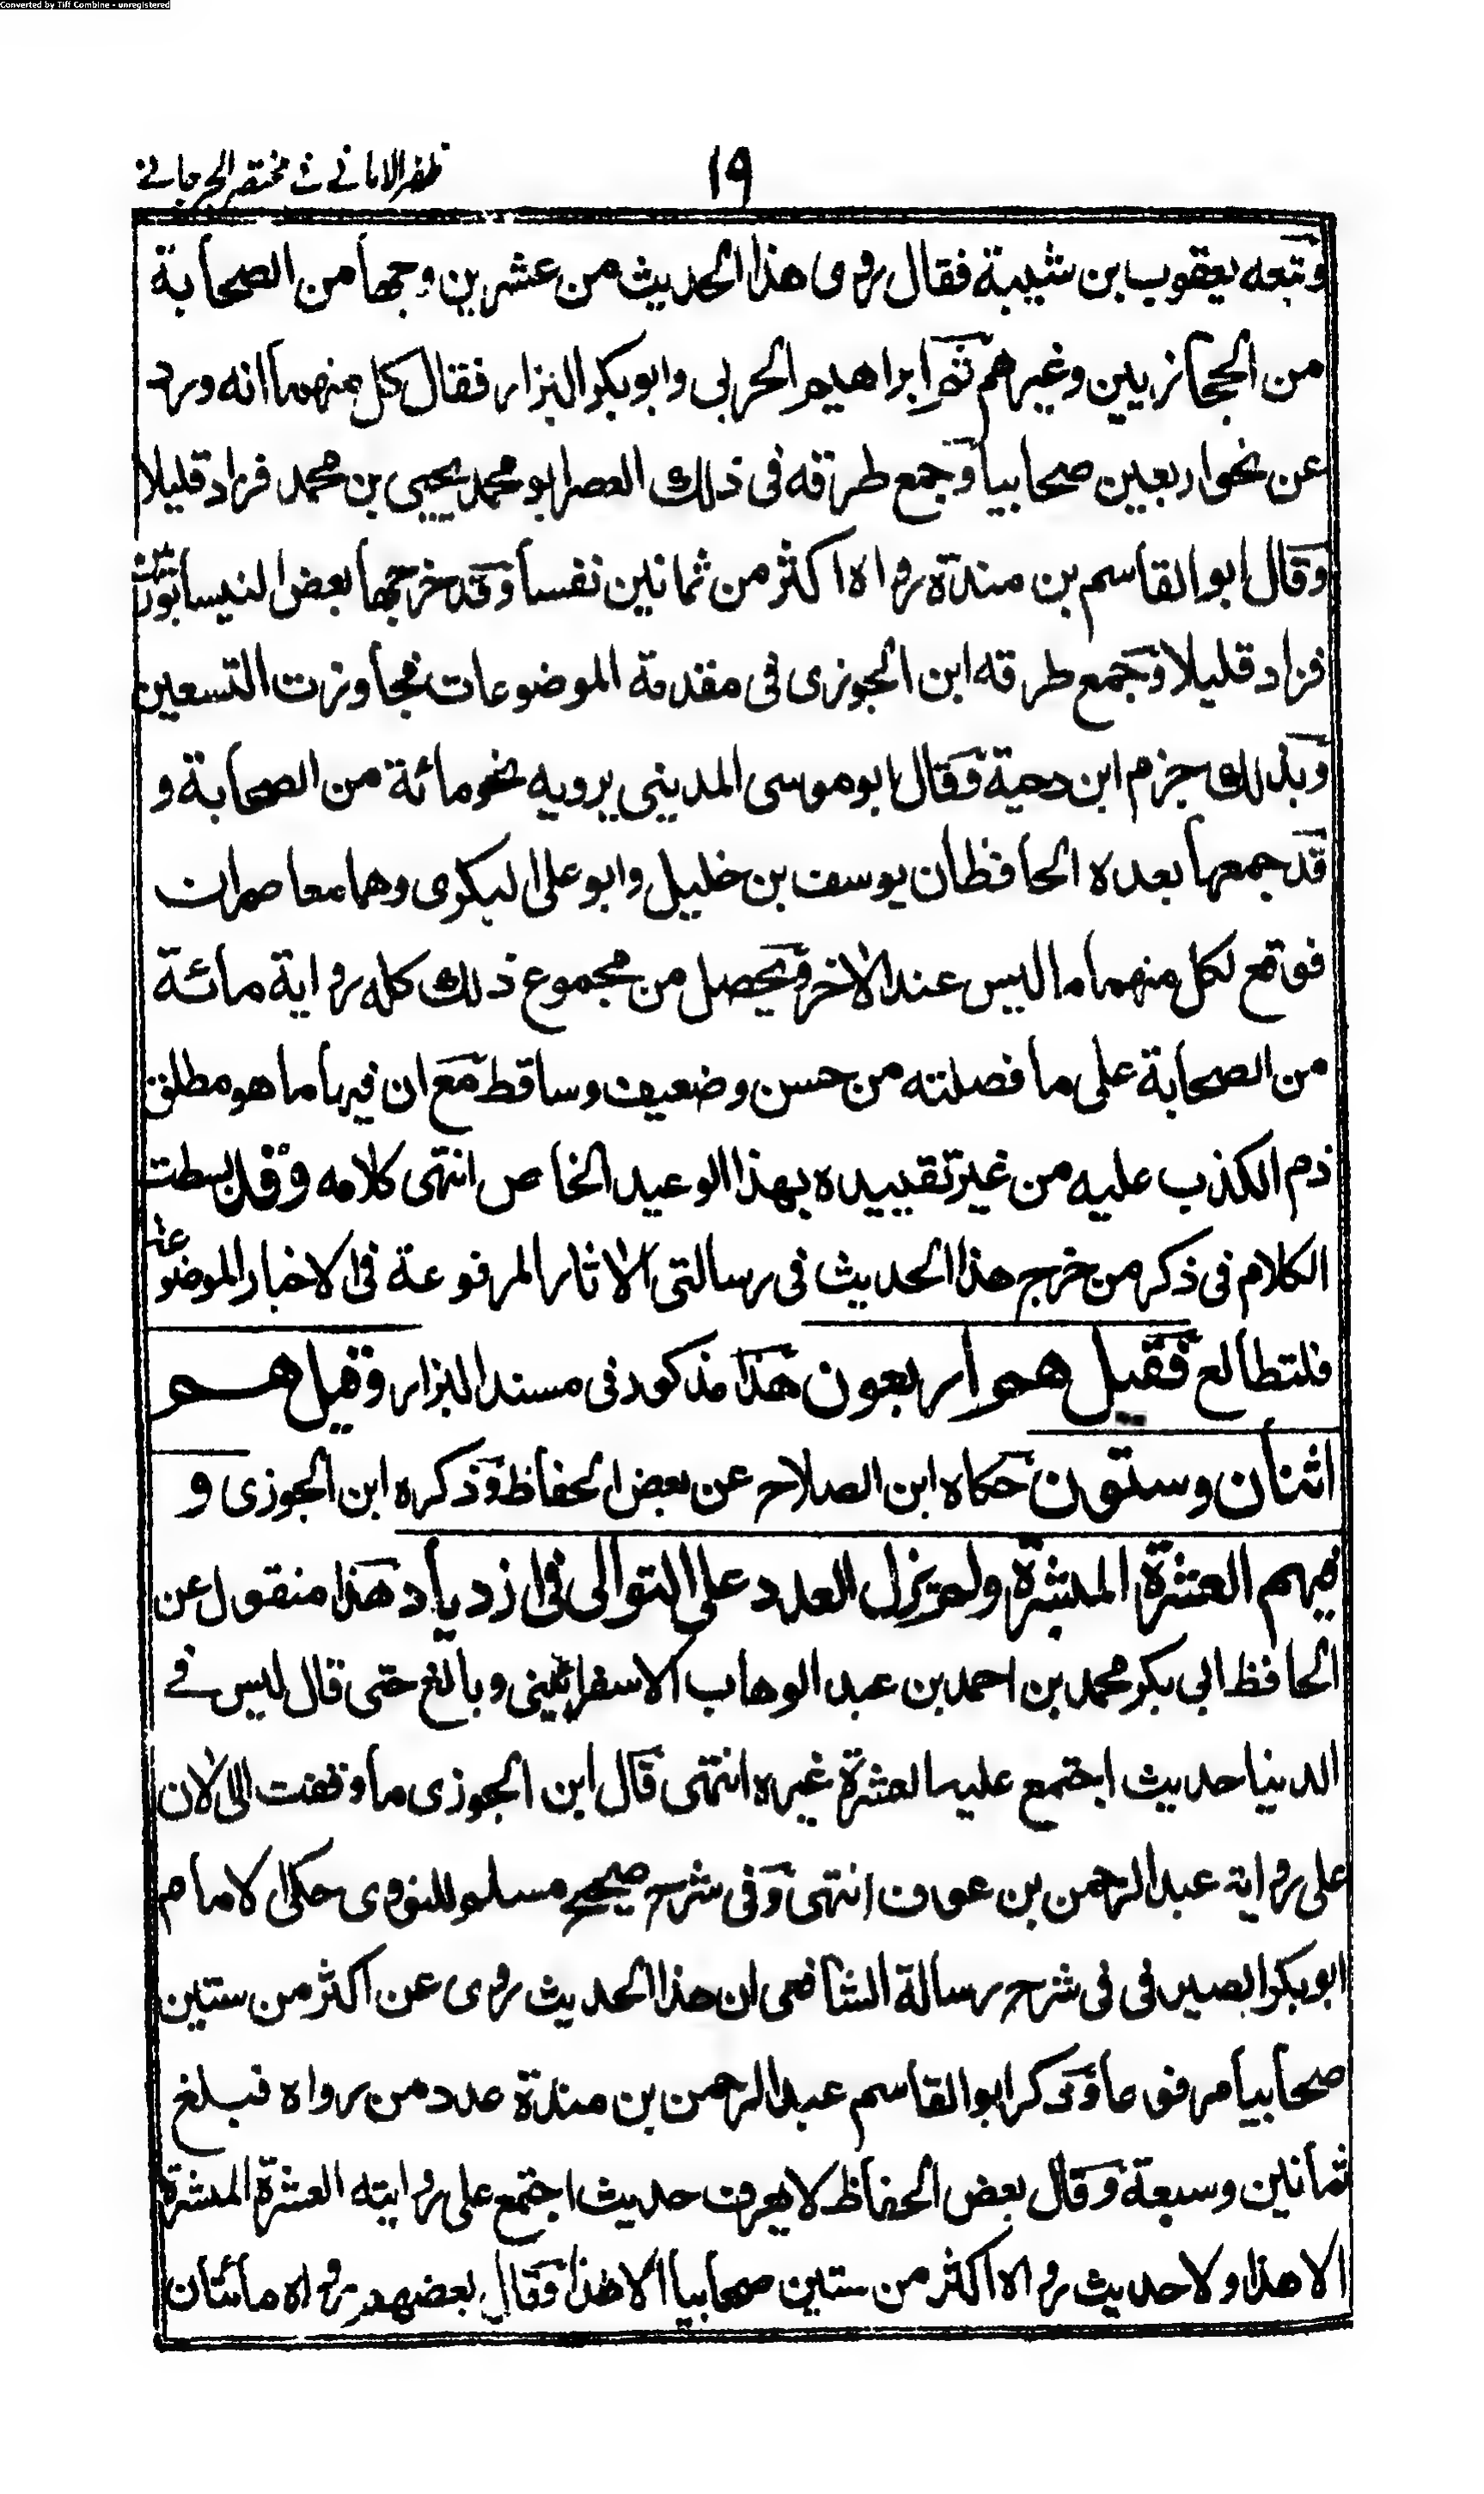 Converted by Tiff Combine - unregistered
١٩
ظفر الاماني في مختصر الجرجاني
وتبعه يعقوب بن شيبة فقال روى هذا الحديث من عشرين وجها من الصحابة
من الحجازيين وغيرهم ثم ابراهيم الحربي وابو بكر البزار فقال كل منهما انه ورد
عن نحو اربعين صحابيا وجمع طرقه في ذلك العصر ابو محمد يحيى بن محمد فزاد قليلا
وقال ابو القاسم بن مندة رواه اكثر من ثمانين نفسا وقد خرجها بعض النيسابوريين
فزاد قليلا وجمع طرقه ابن الجوزى في مقدمة الموضوعات فجاوزت التسعين
وبذلك جزم ابن دحية وقال ابو موسى المديني يرويه نحو مائة من الصحابة و
قد جمعها بعده الحافظان يوسف بن خليل وابو على البكرى وهما معاصران
فوقع لكل منهما ما ليس عند الاخر وتحصل من مجموع ذلك كله رواية مائة
من الصحابة على ما فصلته من حسن وضعيف وساقط مع ان فيها ما هو مطلق
ذم الكذب عليه من غير تقييده بهذا الوعيد الخاص انتهى كلامه وقد بسطت
الكلام في ذكر من خرج هذا الحديث في رسالتى الاثار المرفوعة في الاخبار الموضوعة
فلتطالع فقيل هو اربعون هذا مذكور في مسند البزار وقيل هو
اثنان وستون حكاه ابن الصلاح عن بعض الحفاظ وذكره ابن الجوزى و
فيهم العشرة المبشرة ولم يزل العدد على التوالى في ازدياد هذا منقول عن
الحافظ ابي بكر محمد بن احمد بن عبد الوهاب الاسفرائيني وبالغ حتى قال ليس في
الدنيا حديث اجتمع عليه العشرة غيره انتهى قال ابن الجوزى ما وقفت الى الان
على رواية عبد الرحمن بن عوف انتهى وفى شرح صحيح مسلم للنووى حكى الامام
ابو بكر الصيرفى فى شرح رسالة الشافعى ان هذا الحديث روى عن اكثر من ستين
صحابيا مرفوعا وذكر ابو القاسم عبد الرحمن بن مندة عدد من رواه فبلغ
ثمانين وسبعة وقال بعض الحفاظ لا يعرف حديث اجتمع على روايته العشرة المبشرة
الا هذا ولا حديث رواه اكثر من ستين صحابيا الا هذا وقال بعضهم رواه مائتان